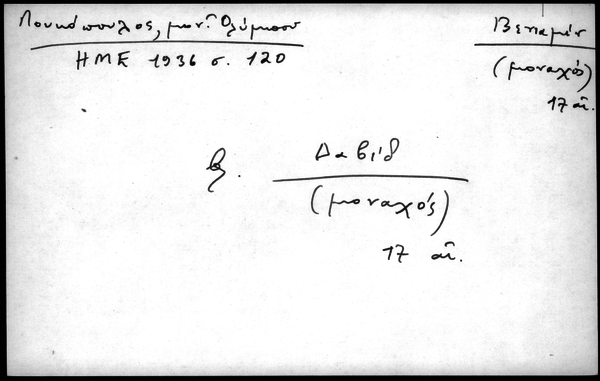 Λουκόπουλος, μον. Ολύμπου
ΗΜΕ 1936 σ. 120
Βενιαμίν
(μοναχός)
17 αι.
β. Δαβίδ
(μοναχός)
17 αι.